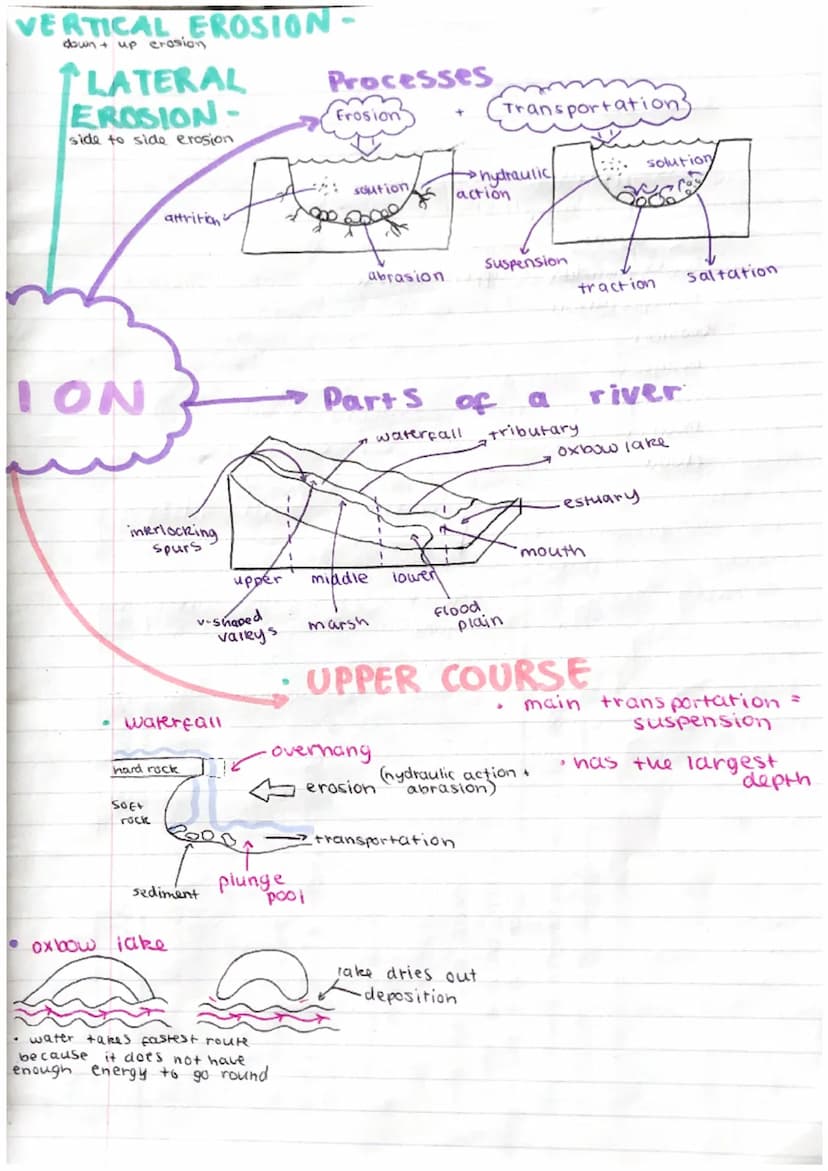 VERTICAL EROSION -
down + up erosion
LATERAL
EROSION -
side to side erosion
Processes
Erosion
+
Transportation
solution
hydraulic
action
attrition
abrasion
solution
suspension
traction
saltation
ION
Parts of a river
waterfall
tributary
oxbow lake
estuary
interlocking
spurs
mouth
upper
middle
lower
v-shaped
valleys
marsh
flood
plain
• UPPER COURSE
• main transportation =
suspension
• has the largest
depth
• waterfall
overhang
hard rock
erosion (hydraulic action +
abrasion)
soft
rock
transportation
sediment
plunge
pool
• oxbow lake
lake dries out
deposition
• water takes fastest route
because it does not have
enough energy to go round